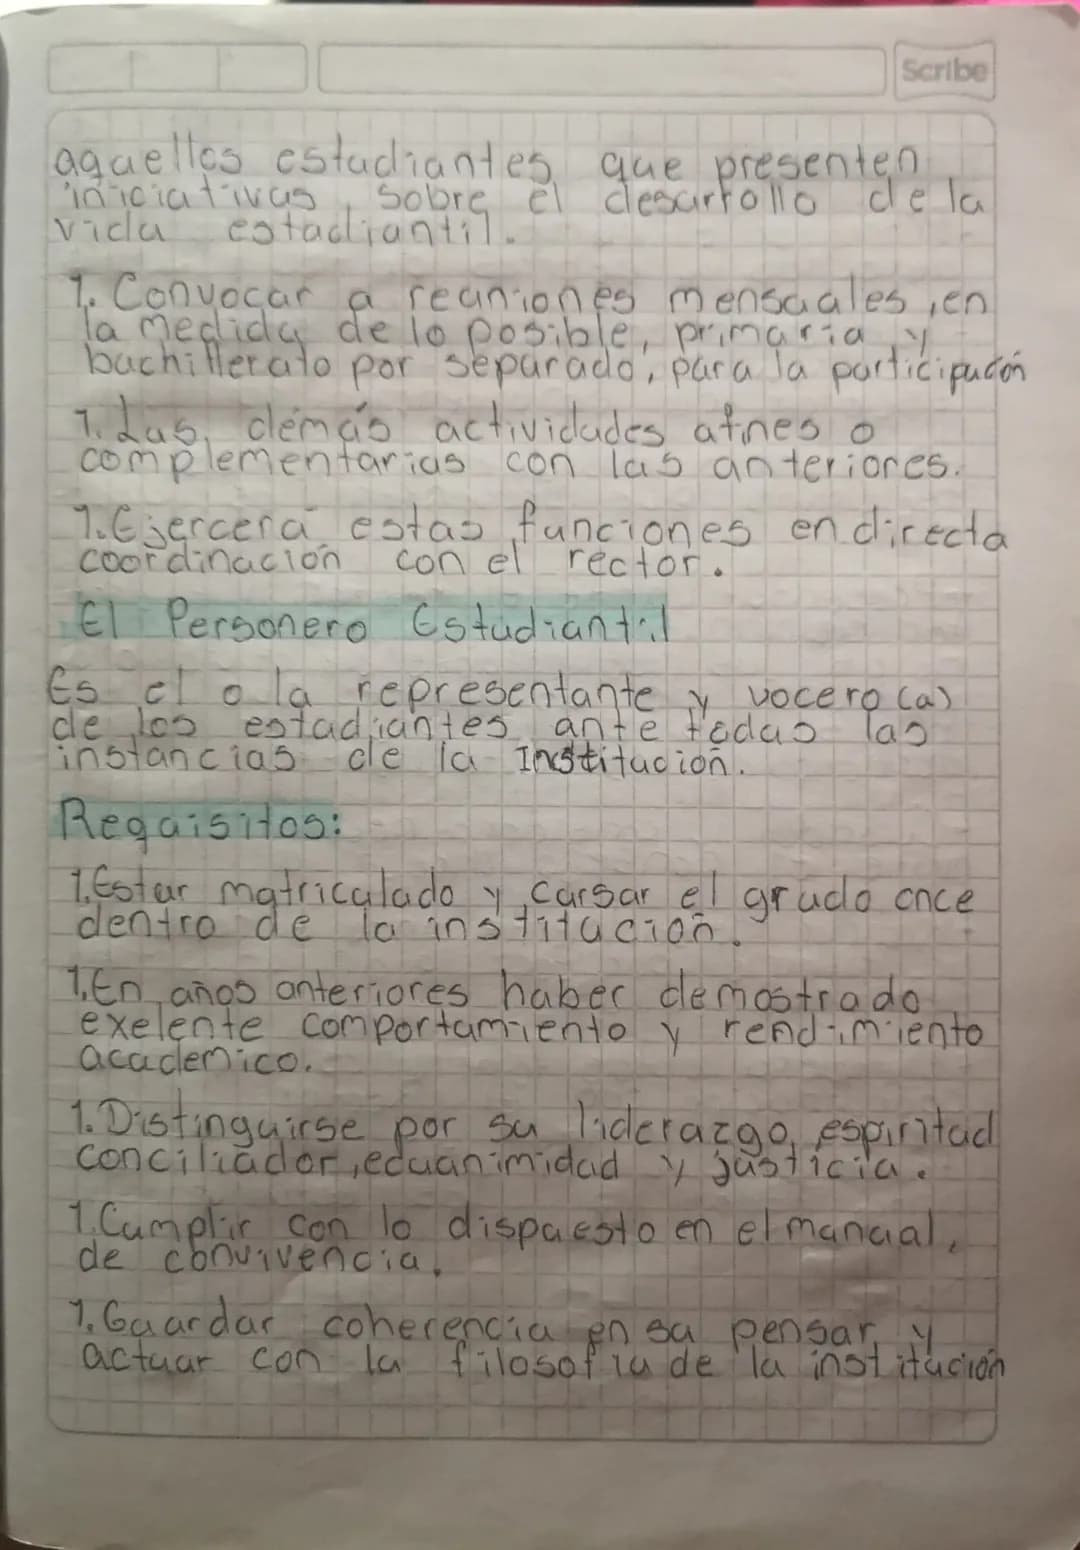 Scribe
aquellos estudiantes que presenten
iniciativas sobre el desarrollo de la
vida estudiantil.
1. Convocar a reuniones mensuales, en
la medida de lo posible, primaria y
bachillerato por separado, para la participación
1. Las demás actividades afines o
complementarias con las anteriores.
1. Ejercerá estas funciones en directa
coordinación con el rector.
El Personero Estudiantil
Es el o la representante y vocero (a)
de los estudiantes ante todas las
instancias de la Institución.
Requisitos:
1. Estar matriculado y cursar el grado once
dentro de la institución.
1. En años anteriores haber demostrado
exelente comportamiento y rendimiento
academico.
1. Distinguirse por su liderazgo, espiritud
conciliador, ecuanimidad y justicia.
1. Cumplir con lo dispuesto en el manual,
de convivencia.
1. Guardar coherencia en su pensar y
actuar con la filosofia de la institución